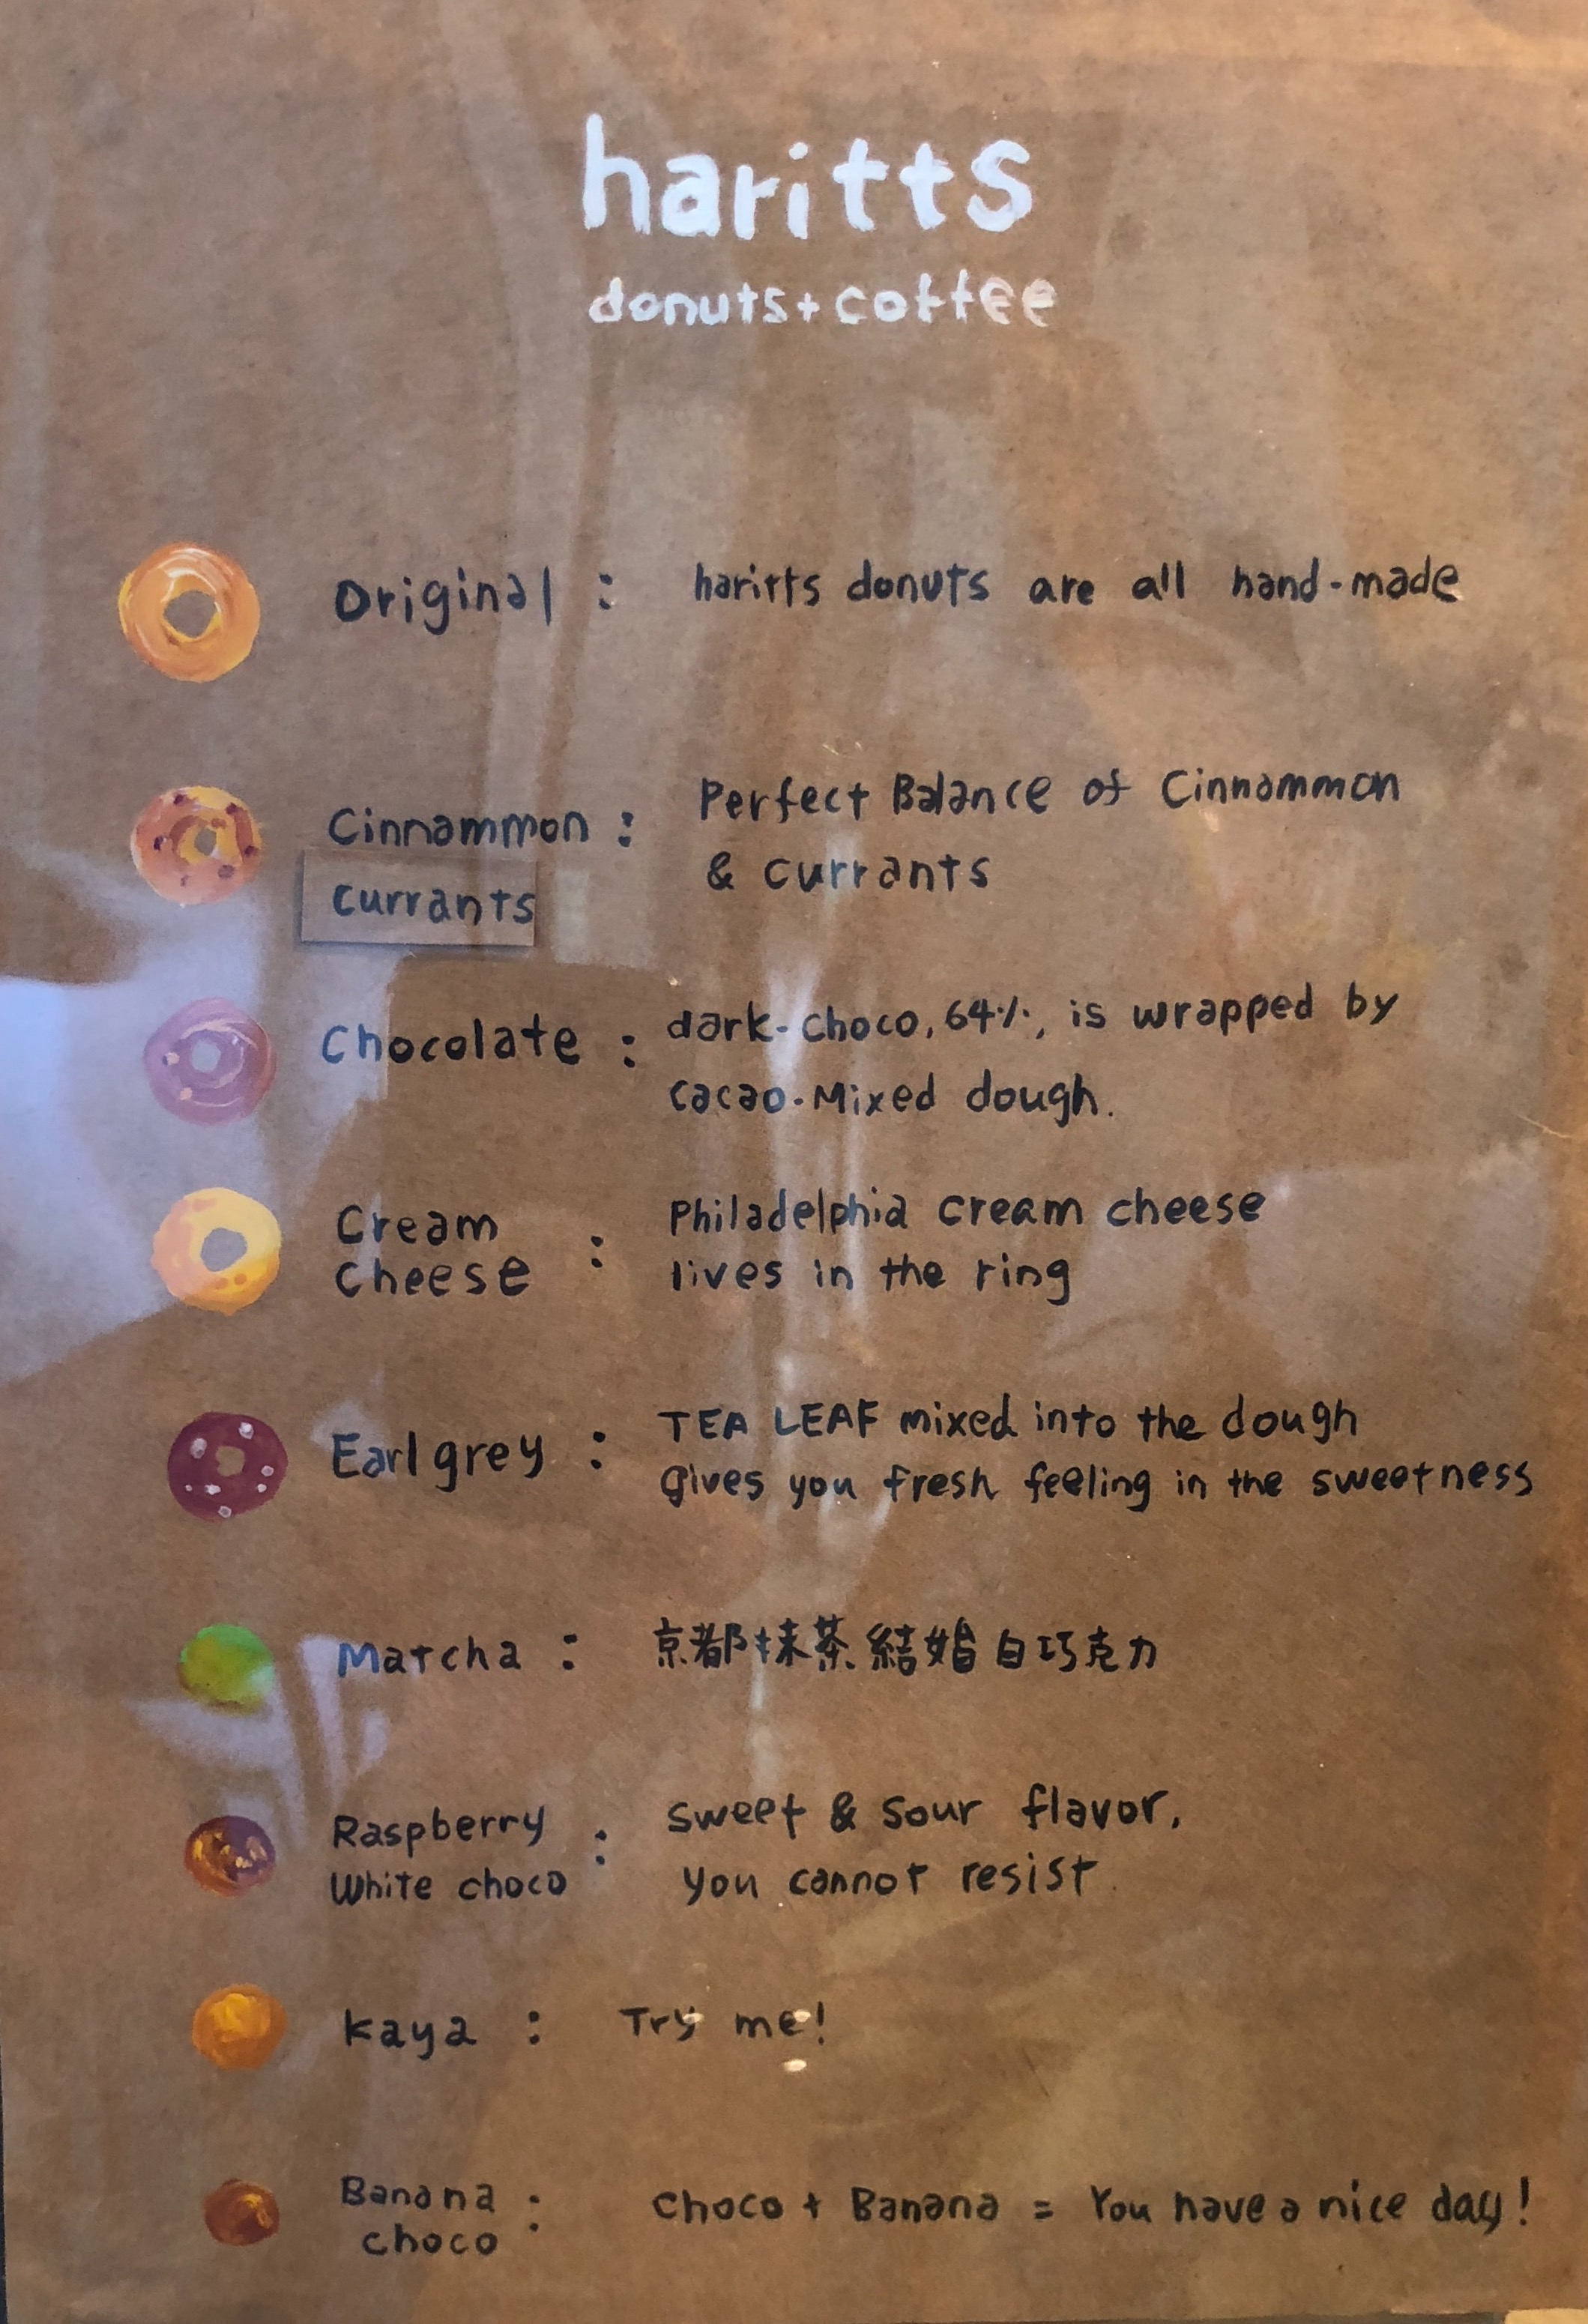 haritts
donuts+coffee
Original : haritts donuts are all hand-made
Cinnammon : Perfect Balance of Cinnammon
Currants & currants
Chocolate : dark-choco, 64%, is wrapped by
cacao-Mixed dough.
Cream : Philadelphia cream cheese
cheese lives in the ring
Earl grey : TEA LEAF mixed into the dough
gives you fresh feeling in the sweetness
Matcha : 京都抹茶結婚白巧克力
Raspberry : sweet & sour flavor,
White choco you cannot resist.
kaya : Try me!
Banana : Choco + Banana = You have a nice day!
choco